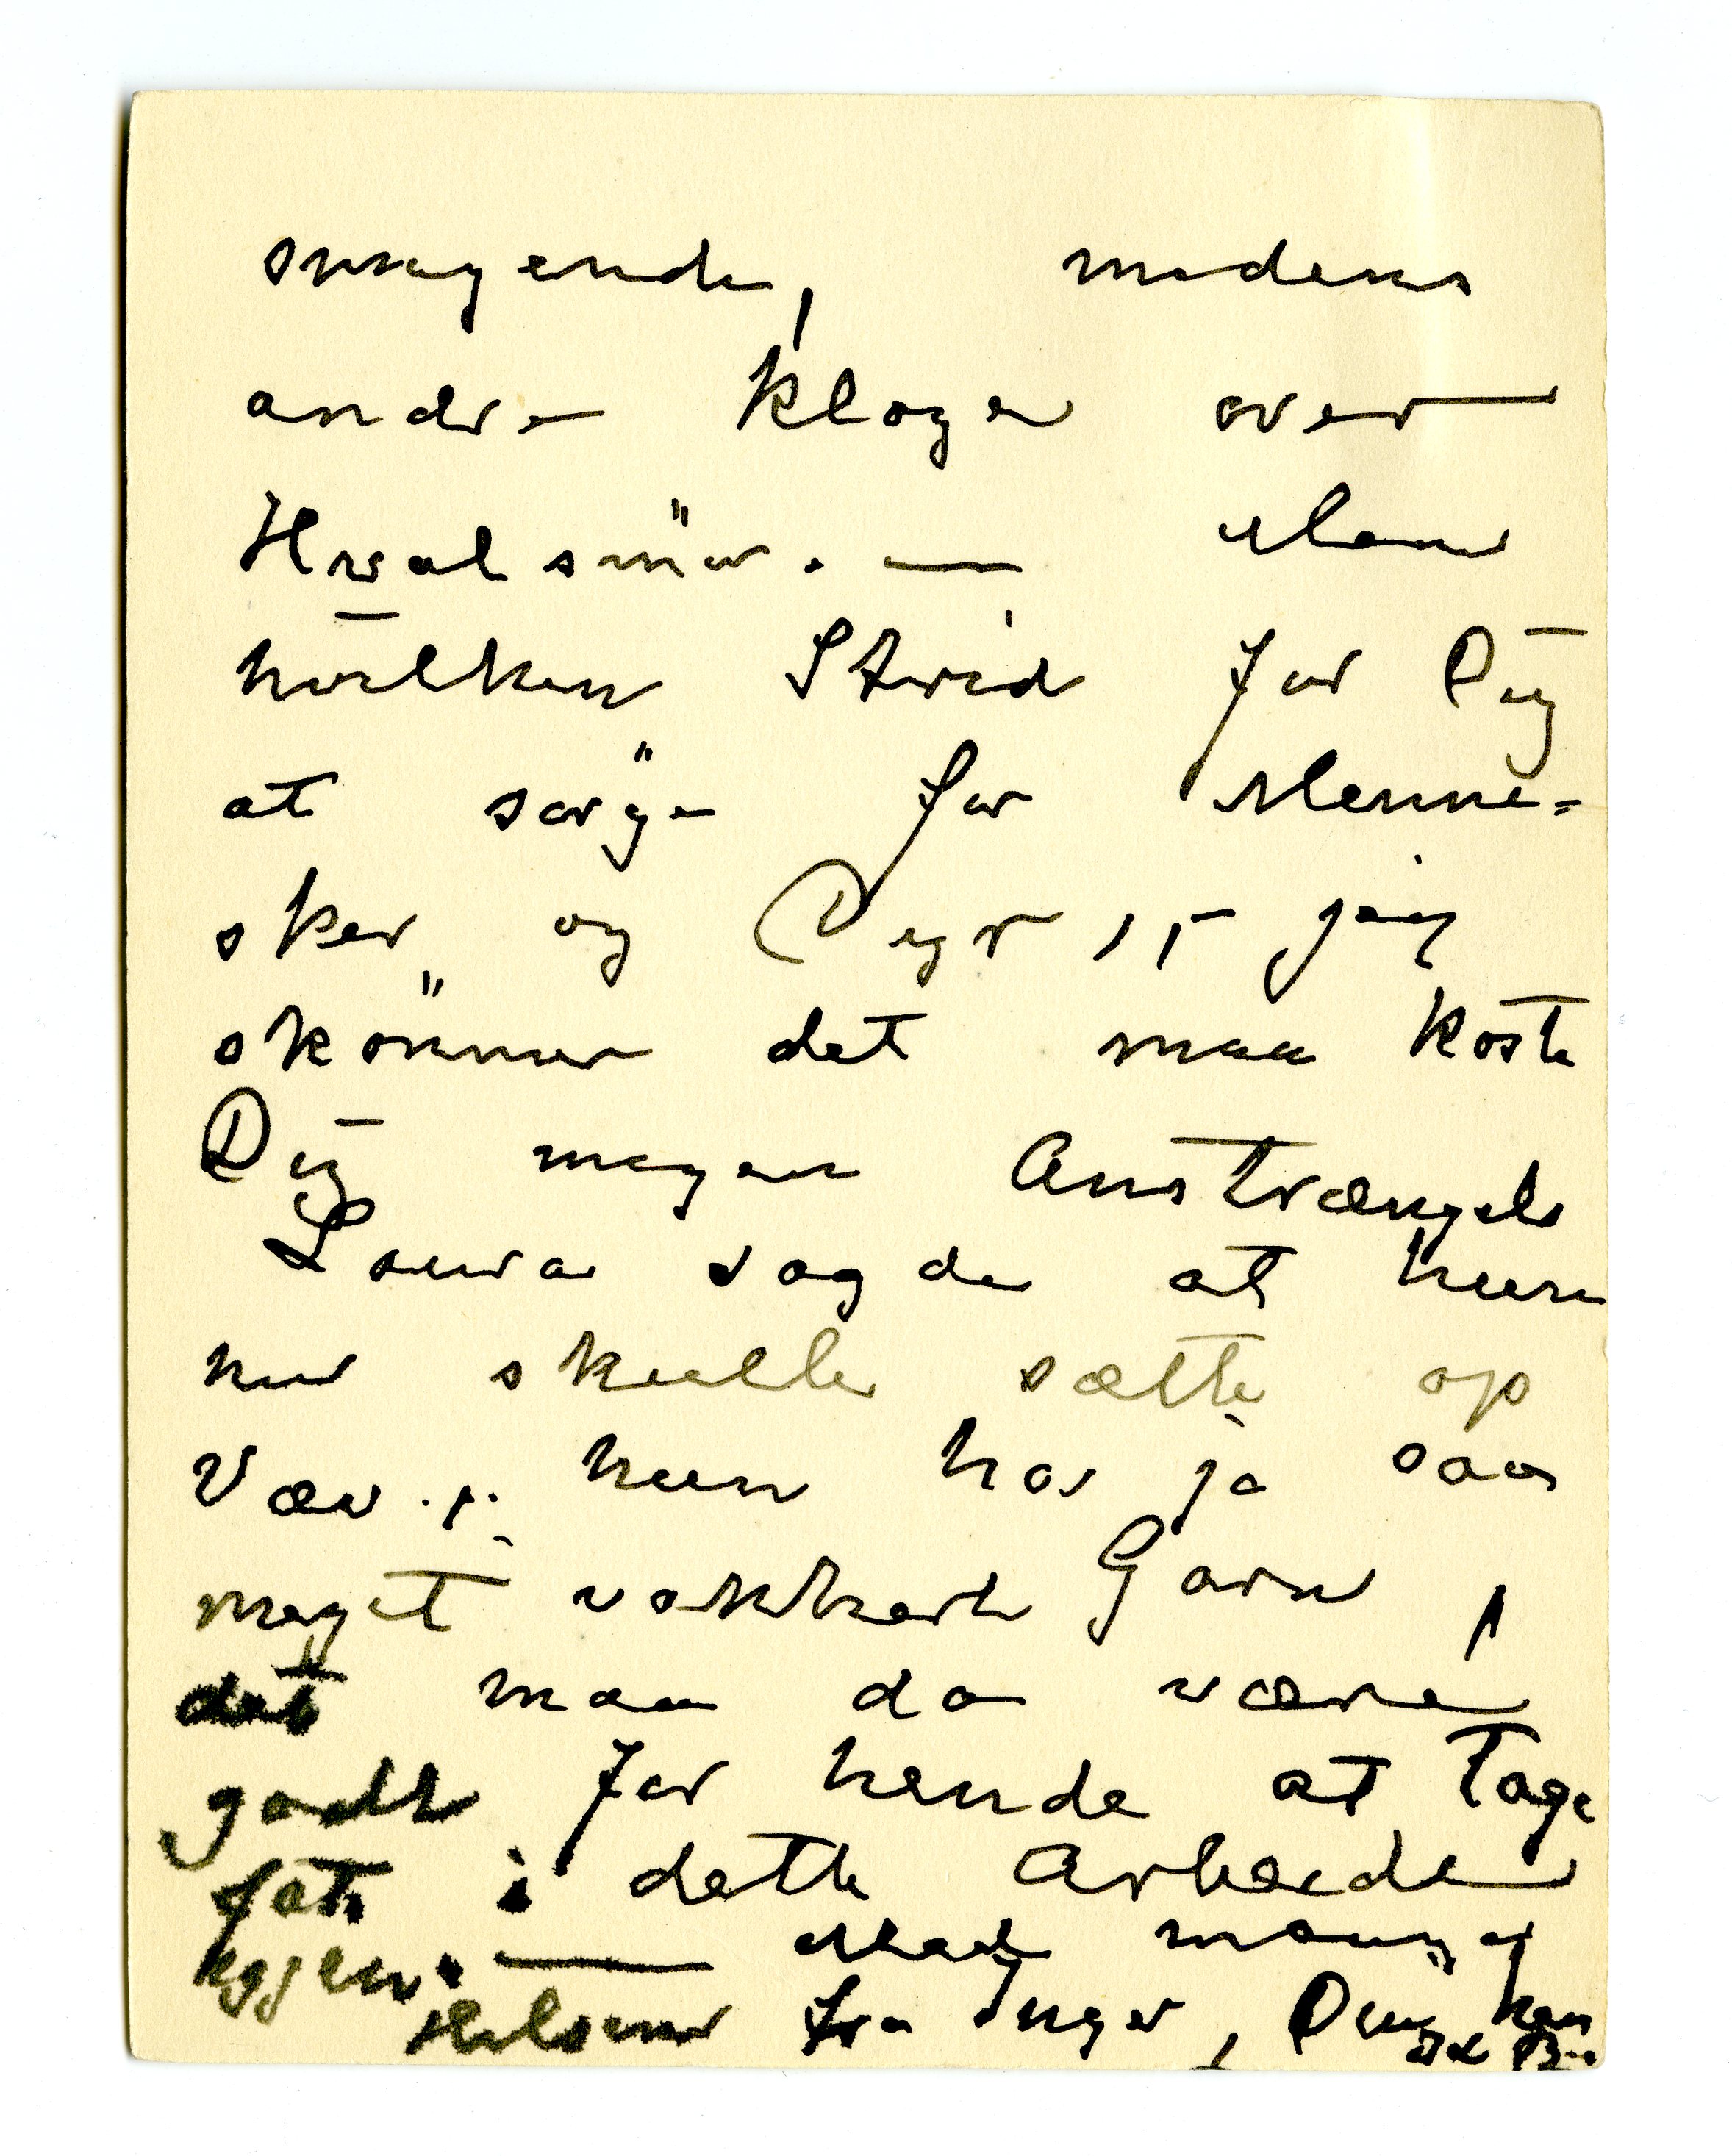 smagende, medens
andre klager over
Hvalsmör. — Men
hvilken Strid for Dig
at sörge for Menne=
sker og Dyr, – jeg
skönner det maa koste
Dig megen Anstrængels
Laura sagde at hun
nu skulle sætte op
Væv . hun har ja saa
meget vakkert Garn,
det maa da være
godt for hende at tage
fat i dette Arbeide
igjen. — Med mange
Hilsener fra Inger, Din